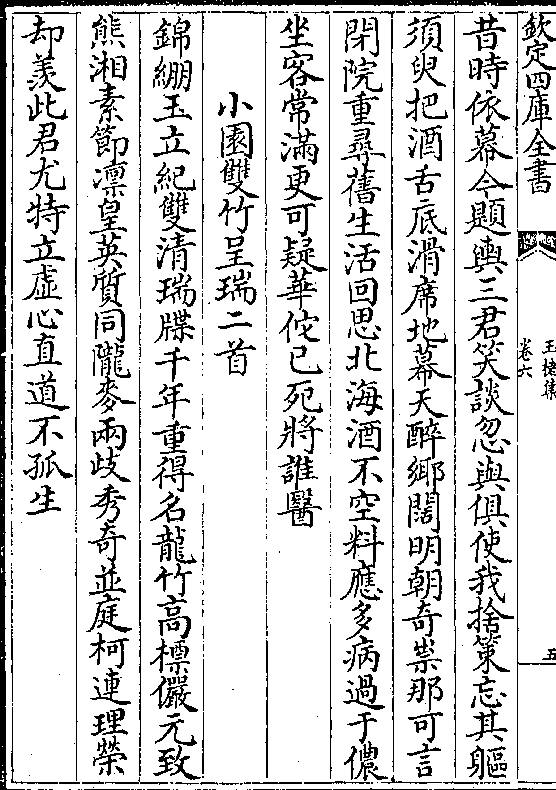 欽定四庫全書
玉楮集
卷六
五
昔時依幕今題輿三君笑談忽與俱使我捨策忘其軀
須臾把酒舌底滑席地幕天醉鄉闊明朝奇祟那可言
閉院重尋舊生活回思北海酒不空料應多病過于儂
坐客常滿更可疑華佗已死將誰醫
小園雙竹呈瑞二首
錦繃玉立紀雙清瑞牒千年重得名龍竹高標儼元致
熊湘素節凛皇英質同隴麥兩歧秀奇並庭柯連理榮
却羨此君尤特立虛心直道不孤生